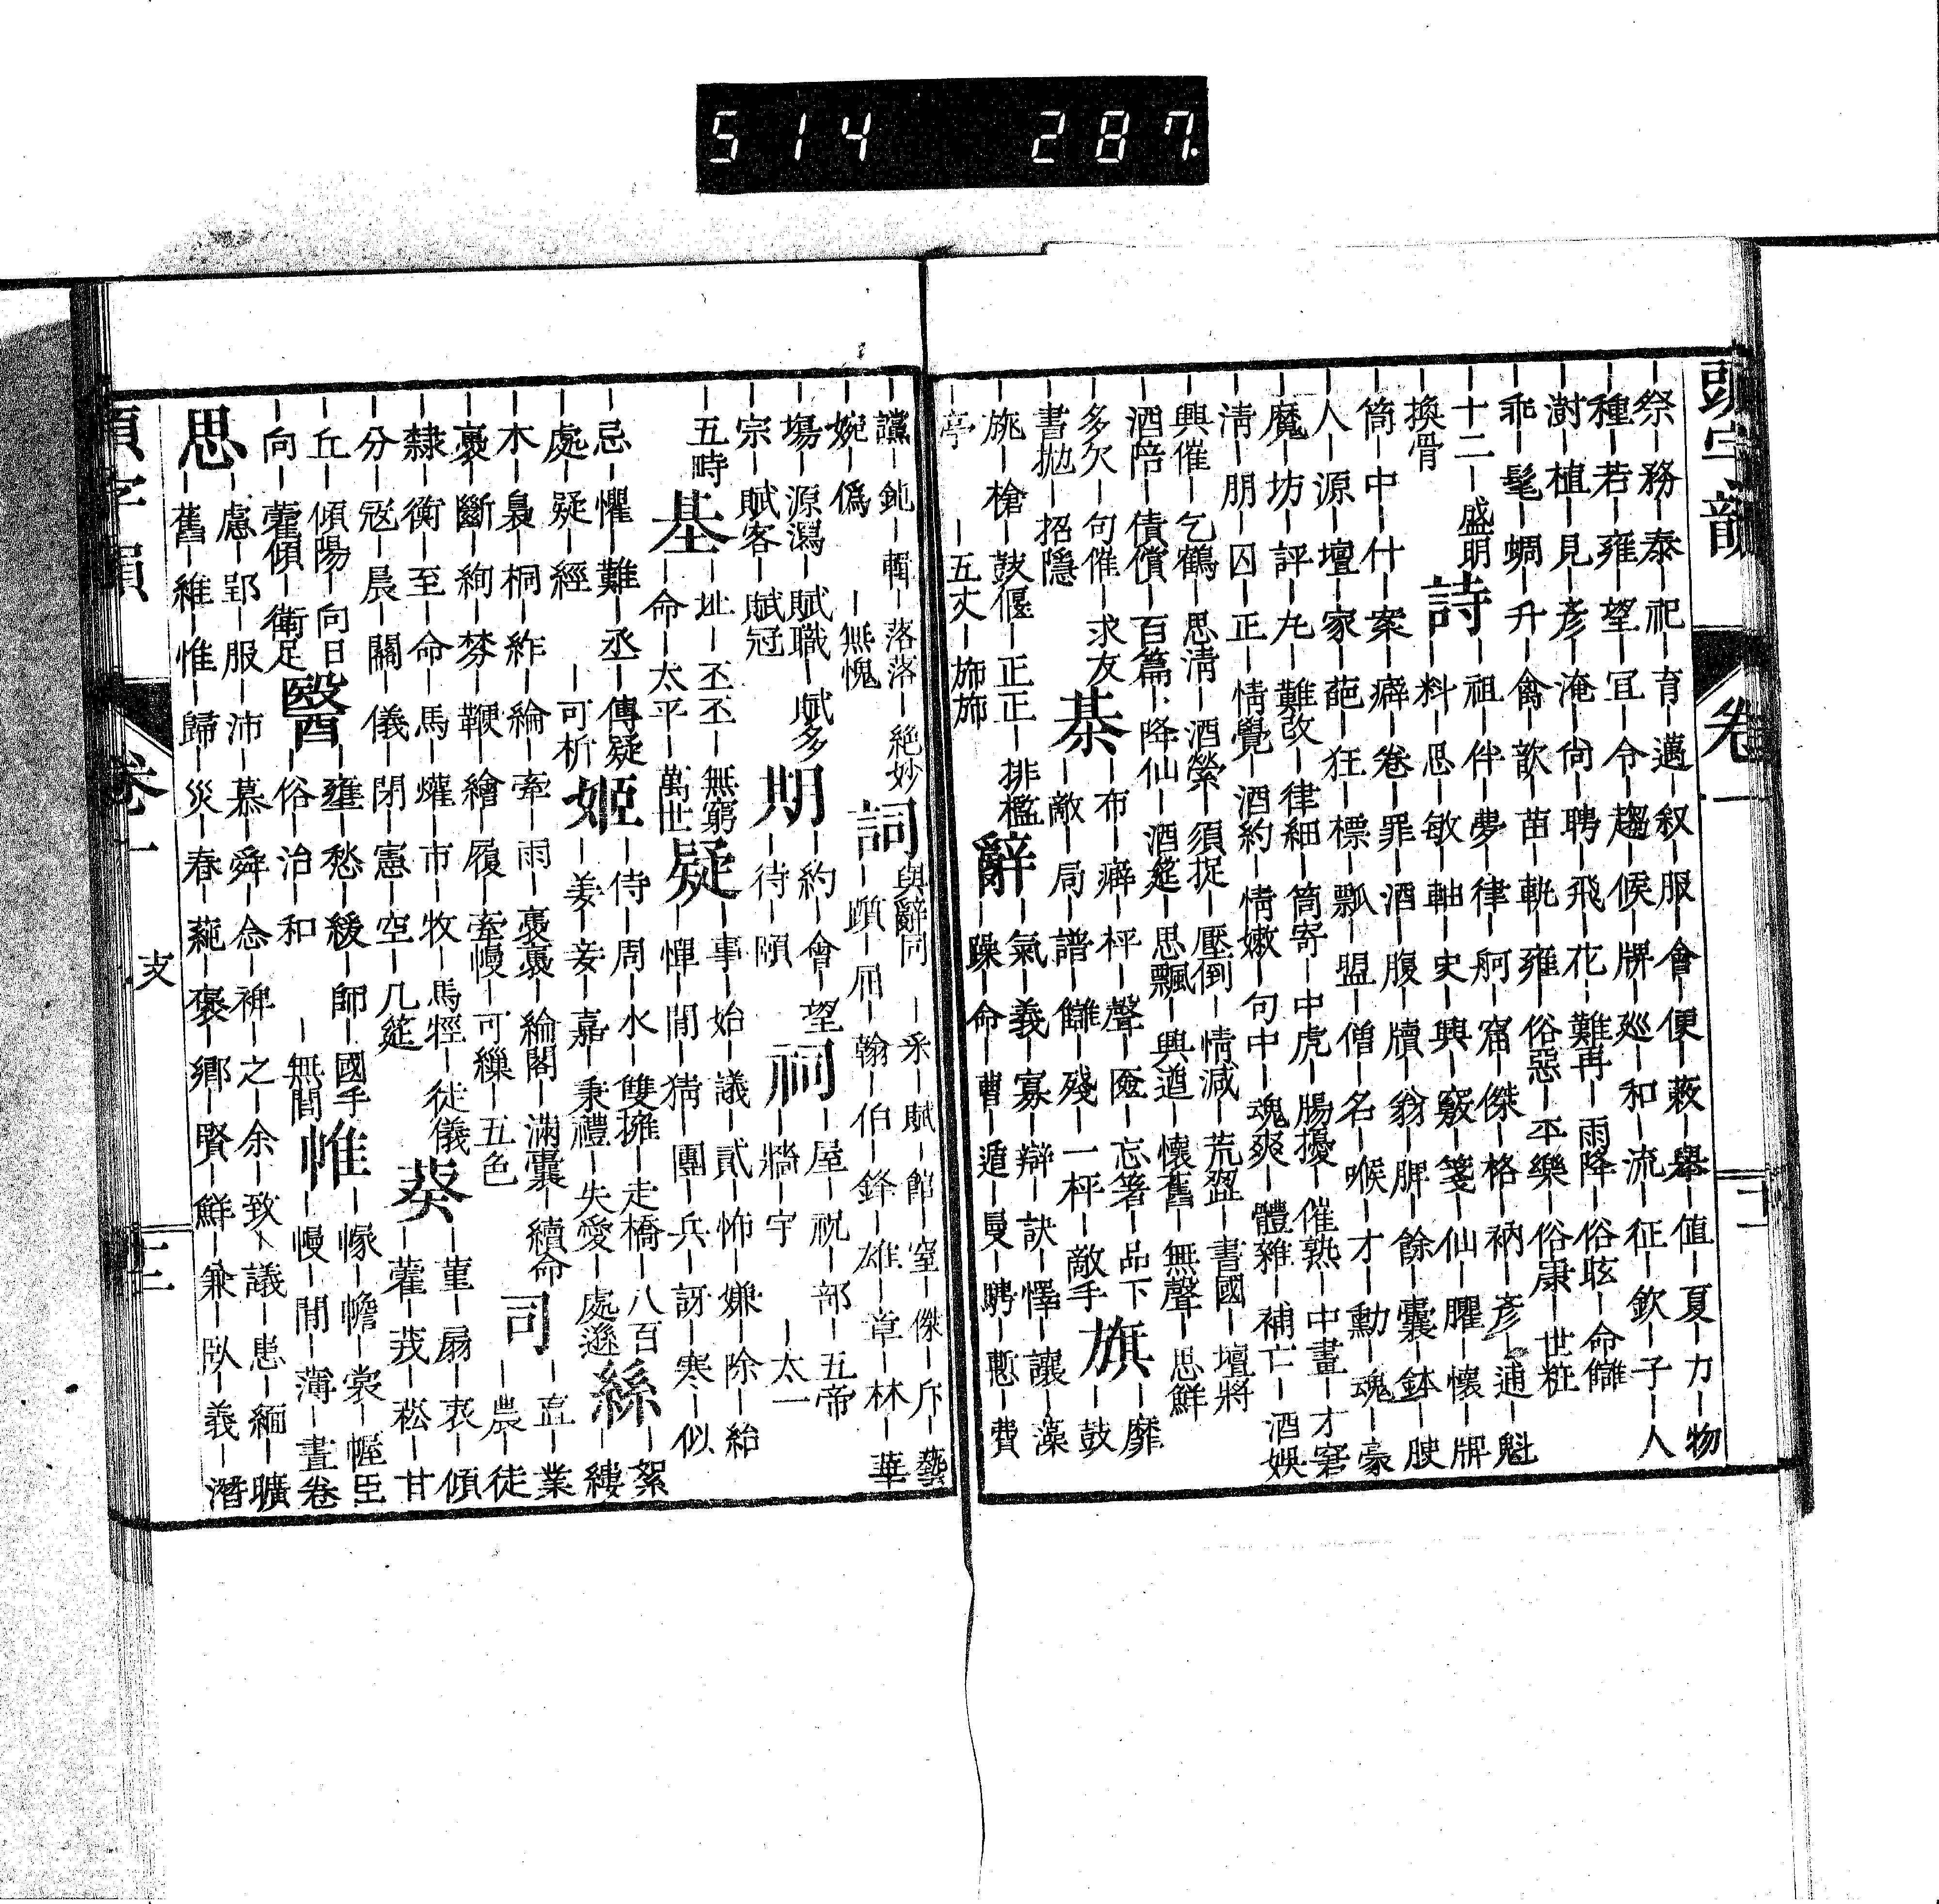 514 287.
卷一
祭｜務｜泰｜祀｜育｜邁｜叙｜服｜會｜便｜蔽｜舉｜値｜夏｜力｜物
種｜若｜雍｜望｜宜｜令｜趨｜候｜牌｜巡｜和｜流｜征｜欽｜子｜人
澍｜植｜見｜彥｜淹｜尙｜聘｜飛｜花｜難再｜雨降｜俗昡｜命讎
乖｜髦｜蜩｜升｜禽｜歆｜苗｜軌｜雍｜俗惡｜平樂｜俗康｜世粧
十二｜盛明
換骨
詩
｜祖｜伴｜夢｜律｜舸｜窟｜傑｜格｜衲｜彥｜逋｜魁
｜料｜思｜敏｜軸｜史｜興｜竅｜箋｜仙｜臞｜懷｜牌
筒｜中｜什｜案｜癖｜卷｜罪｜酒｜腹｜牘｜翁｜脾｜餘｜囊｜鉢｜腴
人｜源｜壇｜家｜葩｜狂｜標｜瓢｜盟｜僧｜名｜喉｜才｜勳｜魂｜豪
魔｜坊｜評｜九｜難改｜律細｜筒寄｜中虎｜腸擾｜催熟｜中畫｜才窘
淸｜朋｜囚｜正｜情覺｜酒約｜情嫩｜句中｜魂爽｜體雜｜補亡｜酒娛
興催｜乞鶴｜思淸｜酒縈｜須捉｜壓倒｜情減｜荒盌｜書國｜壇將
酒陪｜債償｜百篇｜降仙｜酒筵｜思飄｜興遒｜懷舊｜無聲｜思鮮
多欠｜句催｜求友
書拋｜招隱
棊
｜布｜癖｜枰｜聲｜匳｜忘箸｜品下
｜敵｜局｜譜｜讎｜殘｜一枰｜敵手
旗
｜靡
｜鼓
旄｜槍｜鼓偃｜正正｜排檻
亭｜五丈｜斾斾
辭
｜氣｜義｜寡｜辯｜訣｜懌｜讓｜藻
｜躁｜命｜曹｜遁｜曼｜騁｜慙｜費
讜｜鈍｜輯｜落落｜絶妙
婉｜僞｜無愧
詞
與辭同｜釆｜賦｜館｜窒｜傑｜斥｜藝
｜躓｜屈｜翰｜伯｜鋒｜雄｜章｜林｜華
場｜源瀉｜賦職｜賦多
宗｜賦客｜賦冠
期
｜約｜會｜望
｜待｜頤
祠
｜屋｜祝｜部｜五帝
｜牆｜宇｜太一
五時
基
｜址｜丕丕｜無窮
｜命｜太平｜萬世
疑
｜事｜始｜議｜貳｜怖｜嫌｜除｜紿
｜憚｜開｜猜｜團｜兵｜訝｜寒｜似
忌｜懼｜難｜丞｜傳疑
處｜疑｜經｜可析
姬
｜侍｜周｜水｜雙擁｜走橋｜八百
｜姜｜妾｜嘉｜秉禮｜失愛｜處遜
絲
｜絮
｜縷
木｜裊｜桐｜紨｜綸｜牽｜雨｜裊裊｜綸閣｜滿囊｜續命
裹｜斷｜絢｜棼｜鞭｜繪｜履｜牽幔｜可繅｜五色
司
｜直｜業
｜農｜徒
隸｜衡｜至｜命｜馬｜爟｜市｜牧｜馬牼｜徒儀
分｜寇｜晨｜關｜儀｜閉｜憲｜空｜几筵
葵
｜菫｜扇｜衷｜傾
｜藿｜莪｜菘｜甘
丘｜傾陽｜向日
向｜藿傾｜衛足
醫
｜壅｜愁｜緩｜師｜國手
｜俗｜治｜和｜無閭
帷
｜幏｜幨｜裳｜幄｜臣
｜幔｜開｜薄｜晝｜卷
思
｜慮｜郢｜服｜沛｜慕｜舜｜念｜裨｜之｜余｜致｜議｜患｜緬｜曠
｜舊｜維｜惟｜歸｜災｜春｜蒓｜褒｜鄉｜賢｜鮮｜兼｜臥｜義｜潛
卷一
支